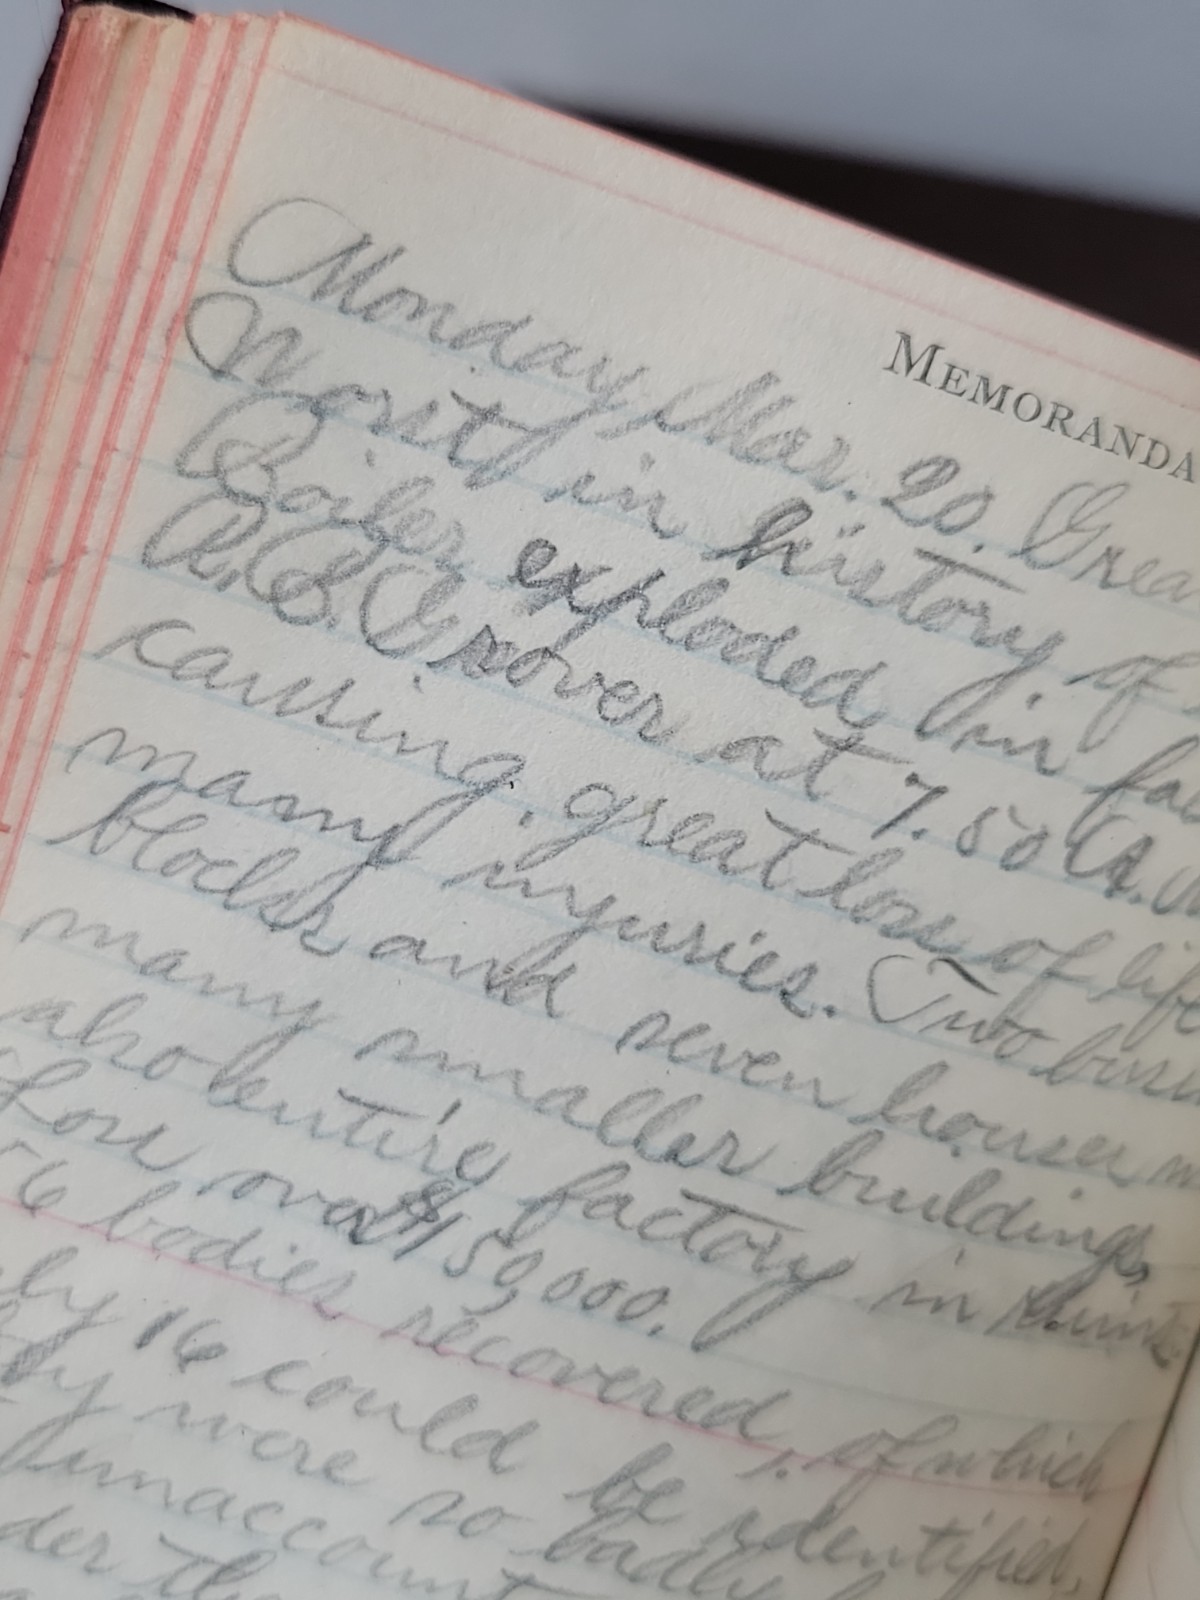 MEMORANDA
Monday Mar. 20. Grea
Worst in history of
Boiler exploded in fac
R. B. Grover at 7.50 A. M
causing great loss of life
many injuries. Two busi
blocks and seven houses
many smaller buildings,
also entire factory in ruins.
Loss over $150,000.
56 bodies recovered, of which
ly 16 could be identified,
were so badly
unaccount
der the